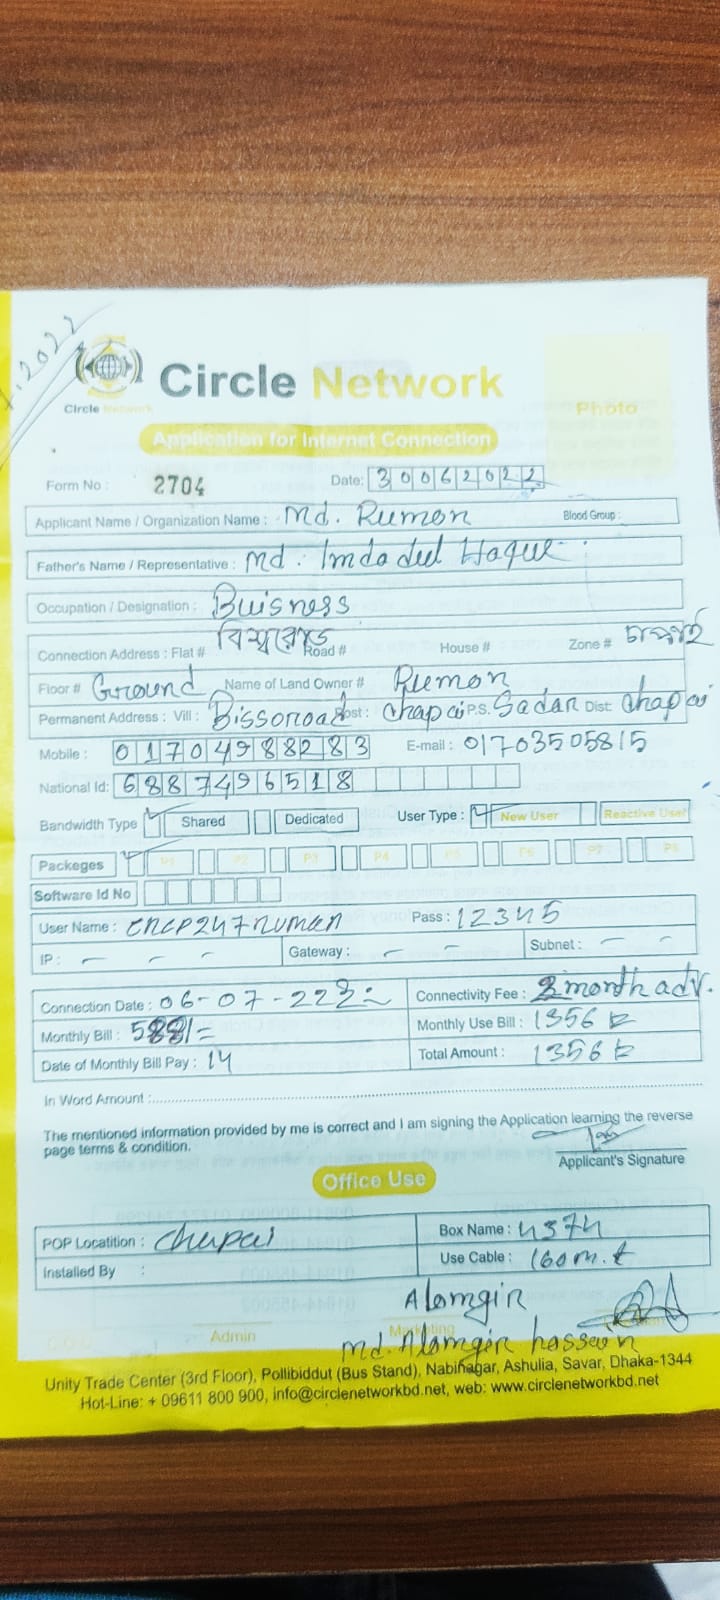 Circle Network
Circle Network
Photo
Application for Internet Connection
Form No : 2704 Date: 30062022
Applicant Name / Organization Name : Md. Rumon Blood Group :
Father's Name / Representative : Md. Imdadul Haque
Occupation / Designation : Buisness
Connection Address : Flat # বিশ্বরোড Road # House # Zone #
Floor # Ground Name of Land Owner # Rumon
Permanent Address : Vill : Bissoroad Post : Chapai P.S. Sadar Dist: Chapai
Mobile : 01704988283 E-mail : 01703505815
National Id: 6887496518
Bandwidth Type Shared Dedicated User Type : New User Reactive User
Packeges P1 P2 P3 P4 P5 P6 P7 P8
Software Id No
User Name : Pass : 12345
IP : - - - Gateway : - - Subnet : - -
Connection Date : 06-07-22 Connectivity Fee : month adv.
Monthly Bill : Monthly Use Bill : 1356
Date of Monthly Bill Pay : 14 Total Amount : 1356
In Word Amount :
The mentioned information provided by me is correct and I am signing the Application learning the reverse
page terms & condition.
Applicant's Signature
Office Use
POP Locatition : Chapai Box Name : 4374
Installed By : Use Cable : 160m.t
Alamgir
Admin Marketing
Md. Alamgir hossain
Unity Trade Center (3rd Floor), Pollibiddut (Bus Stand), Nabinagar, Ashulia, Savar, Dhaka-1344
Hot-Line: + 09611 800 900, info@circlenetworkbd.net, web: www.circlenetworkbd.net